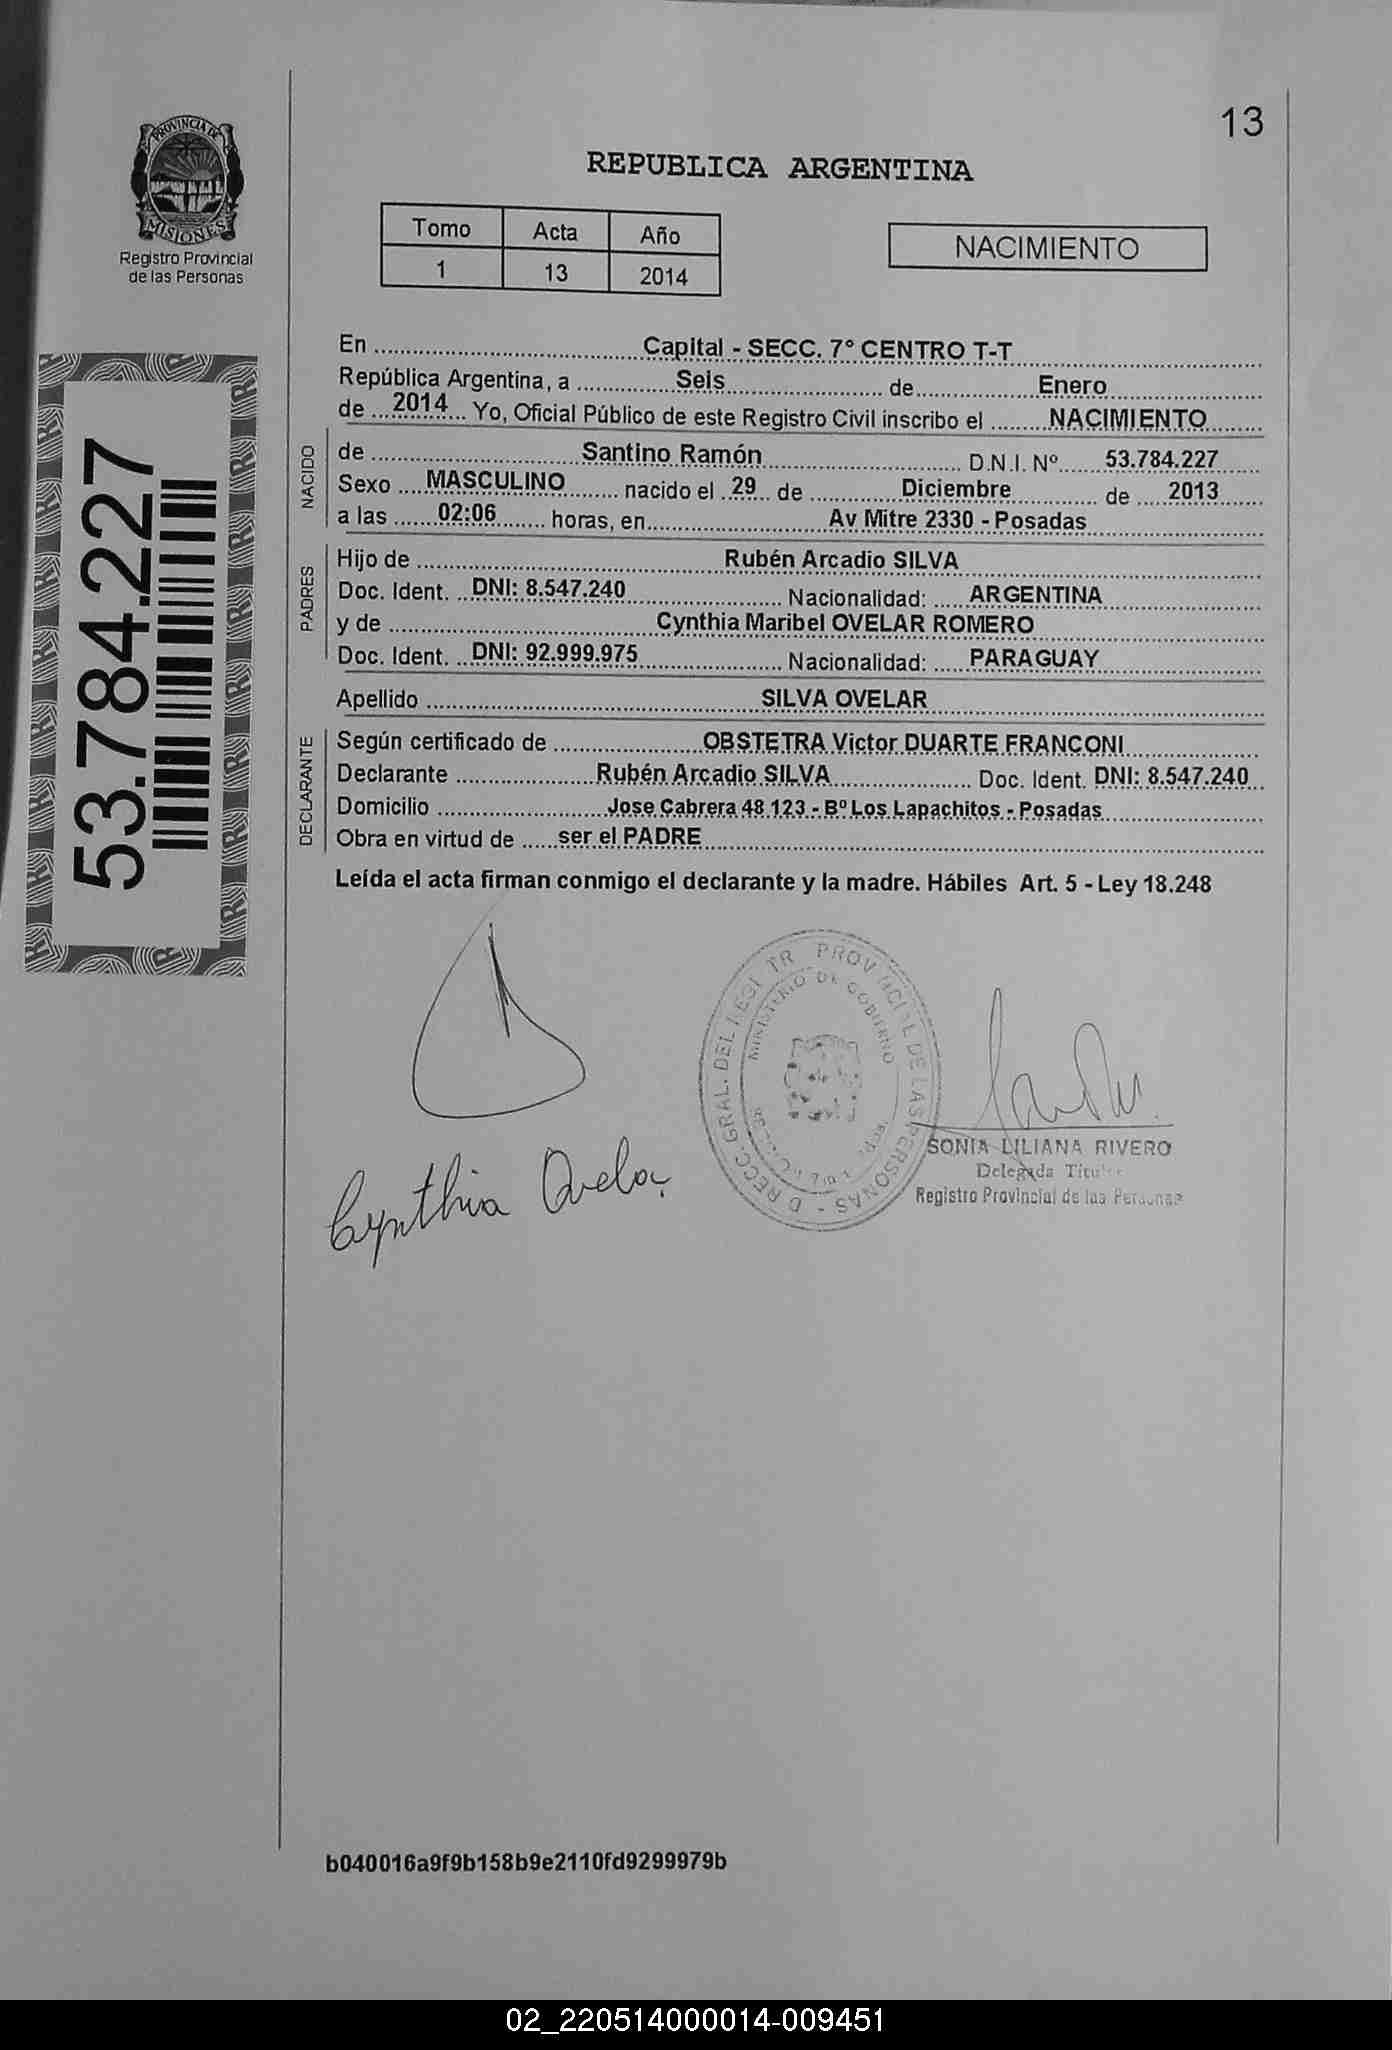 13
PROVINCIA DE
MISIONES
Registro Provincial
de las Personas
REPUBLICA ARGENTINA
Tomo Acta Año
1 13 2014
NACIMIENTO
53.784.227
En Capital - SECC. 7º CENTRO T-T
República Argentina, a Seis de Enero
de 2014 Yo, Oficial Público de este Registro Civil inscribo el NACIMIENTO
NACIDO
de Santino Ramón D.N.I. Nº 53.784.227
Sexo MASCULINO nacido el 29 de Diciembre de 2013
a las 02:06 horas, en Av Mitre 2330 - Posadas
PADRES
Hijo de Rubén Arcadio SILVA
Doc. Ident. DNI: 8.547.240 Nacionalidad: ARGENTINA
y de Cynthia Maribel OVELAR ROMERO
Doc. Ident. DNI: 92.999.975 Nacionalidad: PARAGUAY
Apellido SILVA OVELAR
DECLARANTE
Según certificado de OBSTETRA Victor DUARTE FRANCONI
Declarante Rubén Arcadio SILVA Doc. Ident. DNI: 8.547.240
Domicilio Jose Cabrera 48 123 - Bº Los Lapachitos - Posadas
Obra en virtud de ser el PADRE
Leída el acta firman conmigo el declarante y la madre. Hábiles Art. 5 - Ley 18.248
PROVINCIAL DE LAS PERSONAS
MINISTERIO DE GOBIERNO
Cynthia Ovelar
SONIA LILIANA RIVERO
Delegada Titular
Registro Provincial de las Personas
b040016a9f9b158b9e2110fd9299979b
02_220514000014-009451